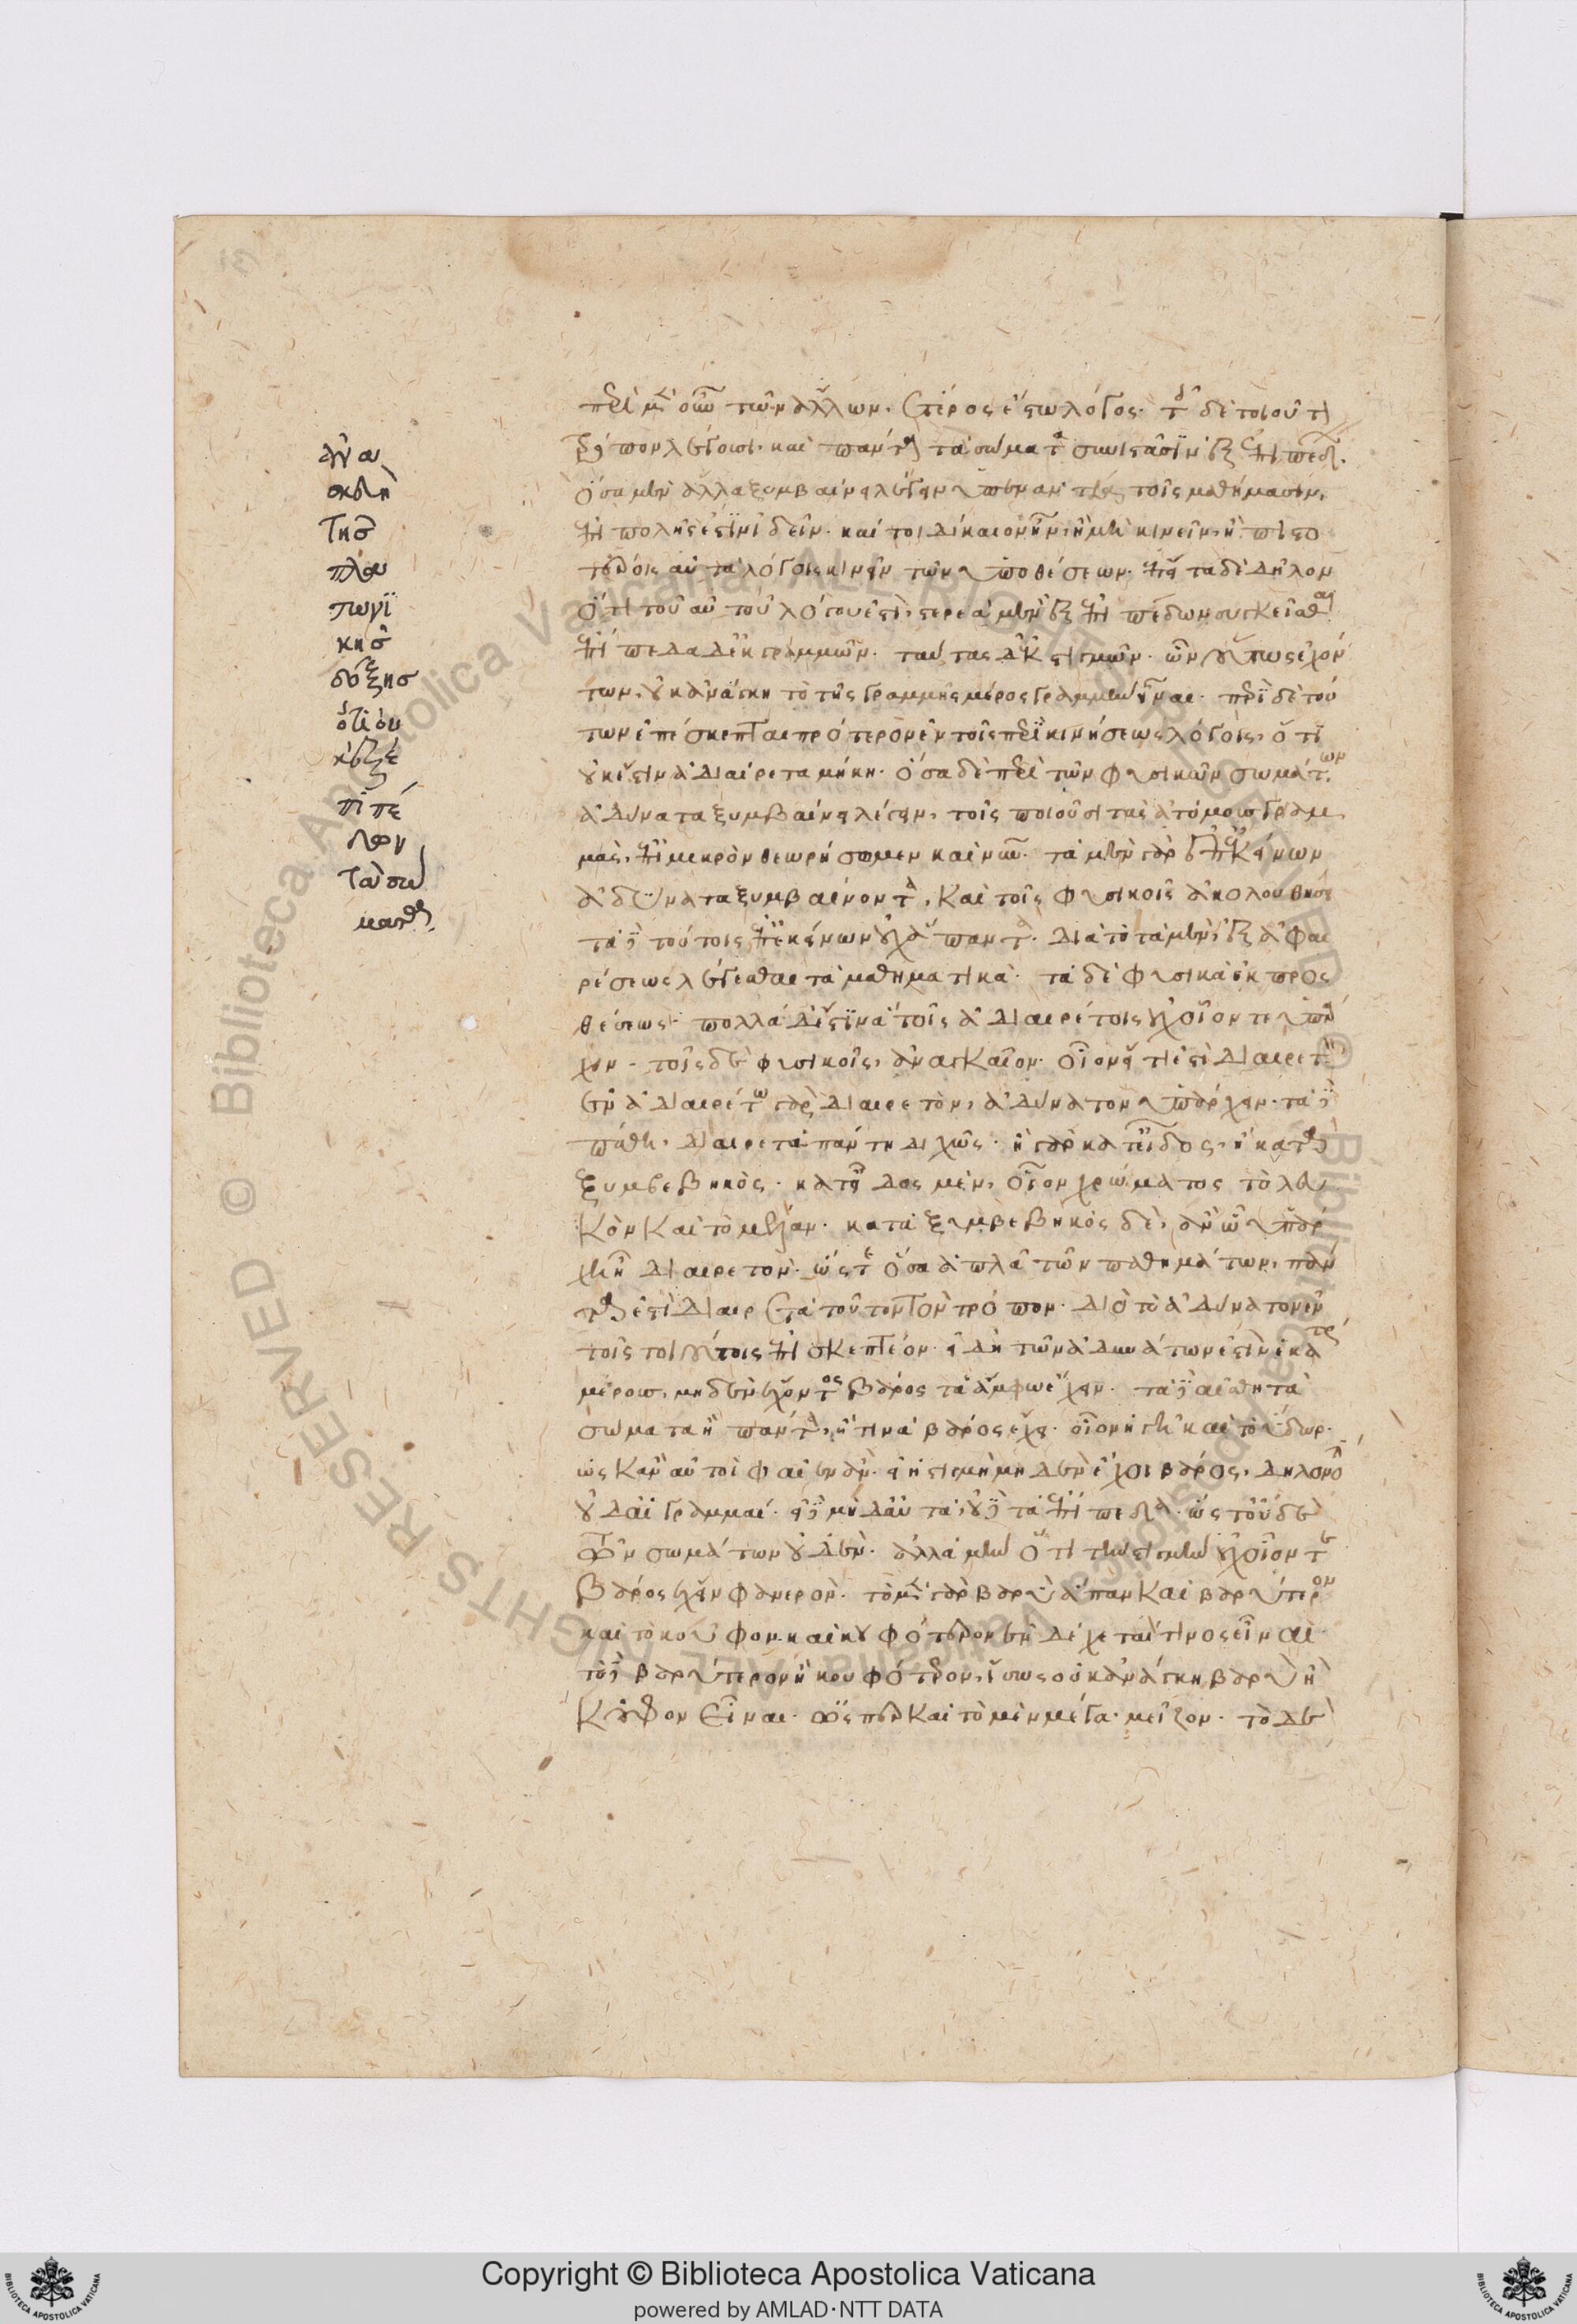 ἀνα
σκευὴ
τῆς
πλα
τωνι
κῆς
δόξης
ὅτι οὐ
κ ἐξ ἐ
πιπέ
δων
τὰ σώ
ματα.
περὶ μὲν οὖν τῶν ἄλλων, ἕτερος ἔστω λόγος. τοῖς δὲ τοῦτον τὸν
τρόπον λέγουσι, καὶ πάντα τὰ σώματα συνιστᾶσιν ἐξ ἐπιπέδων.
ὅσα μὲν ἄλλα ξυμβαίνει λέγειν ὑπεναντία τοῖς μαθήμασιν,
ἐπιπολῆς ἐστὶν ἰδεῖν. καίτοι δίκαιον ἦν, ἢ μὴ κινεῖν, ἢ πιστο
τέροις αὐτὰ λόγοις κινεῖν τῶν ὑποθέσεων. ἔπειτα δὲ δῆλον
ὅτι τοῦ αὐτοῦ λόγου ἐστὶ, στερεὰ μὲν ἐξ ἐπιπέδων συγκεῖσθαι
ἐπίπεδα δ' ἐκ γραμμῶν. ταύτας δ' ἐκ στιγμῶν. ὧν οὕτως ἐχόν
των, οὐκ ἀνάγκη τὸ τῆς γραμμῆς μέρος γραμμὴν εἶναι. περὶ δὲ τού
των ἐπέσκεπται πρότερον ἐν τοῖς περὶ κινήσεως λόγοις, ὅτι
οὐκ ἔστιν ἀδιαίρετα μήκη. ὅσα δὲ περὶ τῶν φυσικῶν σωμάτων
ἀδύνατα ξυμβαίνει λέγειν, τοῖς ποιοῦσι τὰς ἀτόμους γραμ
μὰς, ἐπὶ μικρὸν θεωρήσωμεν καὶ νῦν. τὰ μὲν γὰρ ἐπ' ἐκείνων
ἀδύνατα ξυμβαίνοντα, καὶ τοῖς φυσικοῖς ἀκολουθήσει
τὰ δὲ τούτοις ἐπ' ἐκείνων οὐχ ἅπαντα. διὰ τὸ τὰ μὲν, ἐξ ἀφαι
ρέσεως λέγεσθαι τὰ μαθηματικά. τὰ δὲ φυσικὰ ἐκ προς
θέσεως. πολλὰ δ' ἐστὶν ἃ τοῖς ἀδιαιρέτοις οὐχ οἷόν τε ὑπάρ
χειν. τοῖς δὲ φυσικοῖς, ἀναγκαῖον. οἷον εἴ τί ἐστι διαιρετόν
ἐν ἀδιαιρέτῳ γὰρ διαιρετὸν, ἀδύνατον ὑπάρχειν. τὰ δὲ
πάθη, διαιρετὰ πάντη διχῶς. ἢ γὰρ κατ' εἶδος, ἢ κατὰ
ξυμβεβηκός. κατ' εἶδος μὲν, οἷον χρώματος τὸ λευ
κὸν καὶ τὸ μέλαν. κατὰ ξυμβεβηκὸς δὲ, ἂν ᾧ ὑπάρ
χει ᾖ διαιρετόν. ὥστε ὅσα ἁπλᾶ τῶν παθημάτων, πάν
τα ἐστὶ διαιρετὰ τοῦτον τὸν τρόπον. διὸ τὸ ἀδύνατον ἐν
τοῖς τοιούτοις ἐπισκεπτέον. εἰ δὴ τῶν ἀδυνάτων ἐστὶν ἑκατέρου
μέρους, μηδὲν ἔχοντος βάρος τὰ ἄμφω ἔχειν. τὰ δὲ αἰσθητὰ
σώματα ἢ πάντα, ἢ τινὰ βάρος ἔχει. οἷον ἡ γῆ καὶ τὸ ὕδωρ.
ὡς κἂν αὐτοὶ φαῖεν ἄν. εἰ ἡ στιγμὴ μηδὲν ἔχοι βάρος, δῆλον ὅτι
οὐδ' αἱ γραμμαί. εἰ δὲ μὴ δ' αὗται, οὐδὲ τὰ ἐπίπεδα. ὥστ' οὐδὲ
τῶν σωμάτων οὐδέν. ἀλλὰ μὴν ὅτι τὴν στιγμὴν οὐχ οἷόν τε
βάρος ἔχειν φανερόν. τὸ μὲν γὰρ βαρὺ ἅπαν καὶ βαρύτερον
καὶ τὸ κοῦφον, καὶ κουφότερον ἐνδέχεταί τινος εἶναι.
τὸ δὲ βαρύτερον ἢ κουφότερον, ἴσως οὐκ ἀνάγκη βαρὺ ἢ
κοῦφον εἶναι. ὥσπερ καὶ τὸ μὲν μέγα, μεῖζον. τὸ δὲ
Copyright © Biblioteca Apostolica Vaticana
powered by AMLAD·NTT DATA